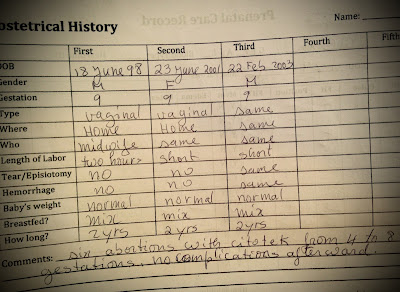 Prenatal Care Record
bstetrical History Name:
First Second Third Fourth Fifth
DOB 18 June 98 23 June 2001 22 Feb 2003
Gender M F M
Gestation 9 9 9
Type vaginal vaginal same
Where Home Home same
Who midwife same same
Length of Labor two hours short short
Tear/Episiotomy no no same
Hemorrhage no no same
Baby's weight normal normal normal
Breastfed? mix mix mix
How long? 2yrs 2yrs 2yrs
Comments: six abortions with citotek from 4 to 8
gestations, no complications afterward.